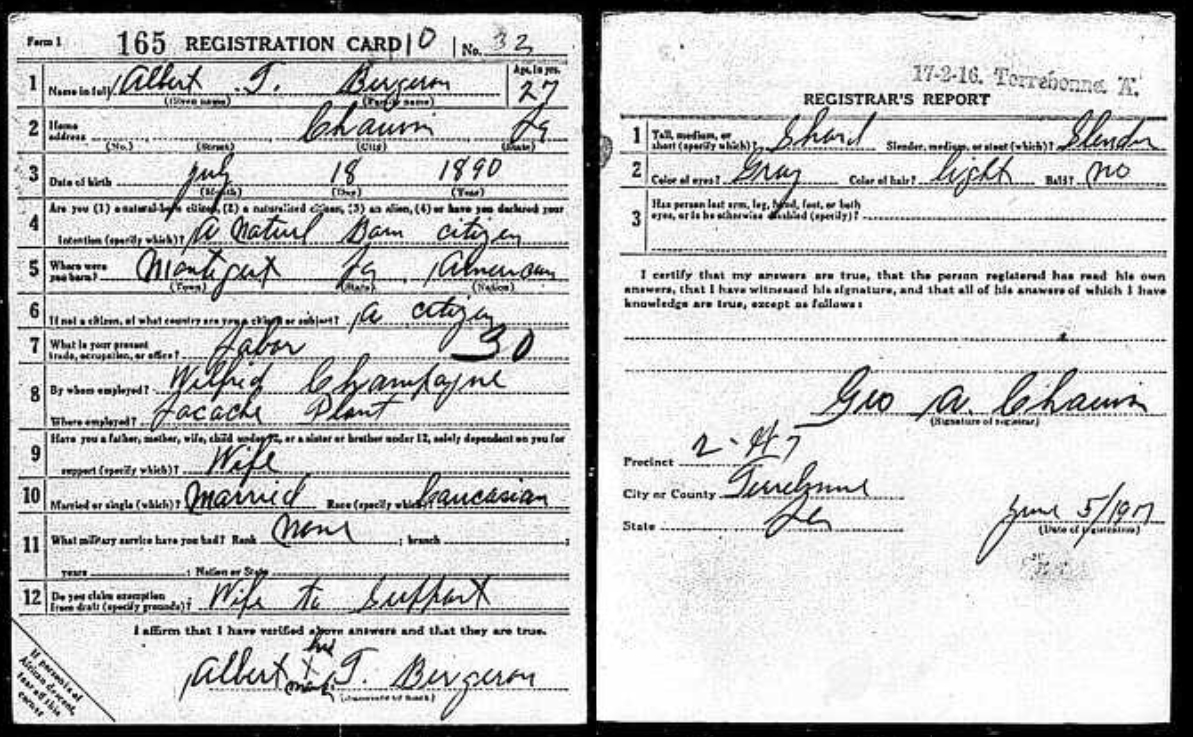 Form 1 165 REGISTRATION CARD 10 No. 32
1 Name in full Albert T. Bergeron Age, in yrs. 27
(Given name) (Family name)
2 Home address Chauvin La
(No.) (Street) (City) (State)
3 Date of birth July 18 1890
(Month) (Day) (Year)
4 Are you (1) a natural-born citizen, (2) a naturalized citizen, (3) an alien, (4) or have you declared your
intention (specify which)? A Naturl Born citizen
5 Where were you born? Montegut La American
(Town) (State) (Nation)
6 If not a citizen, of what country are you a citizen or subject? a citizen
7 What is your present trade, occupation, or office? Labor 30
8 By whom employed? Wilfrid Champagne
Where employed? Lacache Plant
9 Have you a father, mother, wife, child under 12, or a sister or brother under 12, solely dependent on you for
support (specify which)? Wife
10 Married or single (which)? Married Race (specify which)? Caucasian
11 What military service have you had? Rank None ; branch ;
years ; Nation or State
12 Do you claim exemption from draft (specify grounds)? Wife to Support
I affirm that I have verified above answers and that they are true.
his
Albert X T. Bergeron
mark
If person is of African descent, tear off this corner
17-2-16. Terrebonne A.
REGISTRAR'S REPORT
1 Tall, medium, or short (specify which)? Short Slender, medium, or stout (which)? Slender
2 Color of eyes? Gray Color of hair? light Bald? no
3 Has person lost arm, leg, hand, foot, or both
eyes, or is he otherwise disabled (specify)?
I certify that my answers are true, that the person registered has read his own
answers, that I have witnessed his signature, and that all of his answers of which I have
knowledge are true, except as follows:
Geo A. Chauvin
(Signature of registrar)
Precinct 2-
City or County Terrebonne
State La
June 5/1917
(Date of registration)